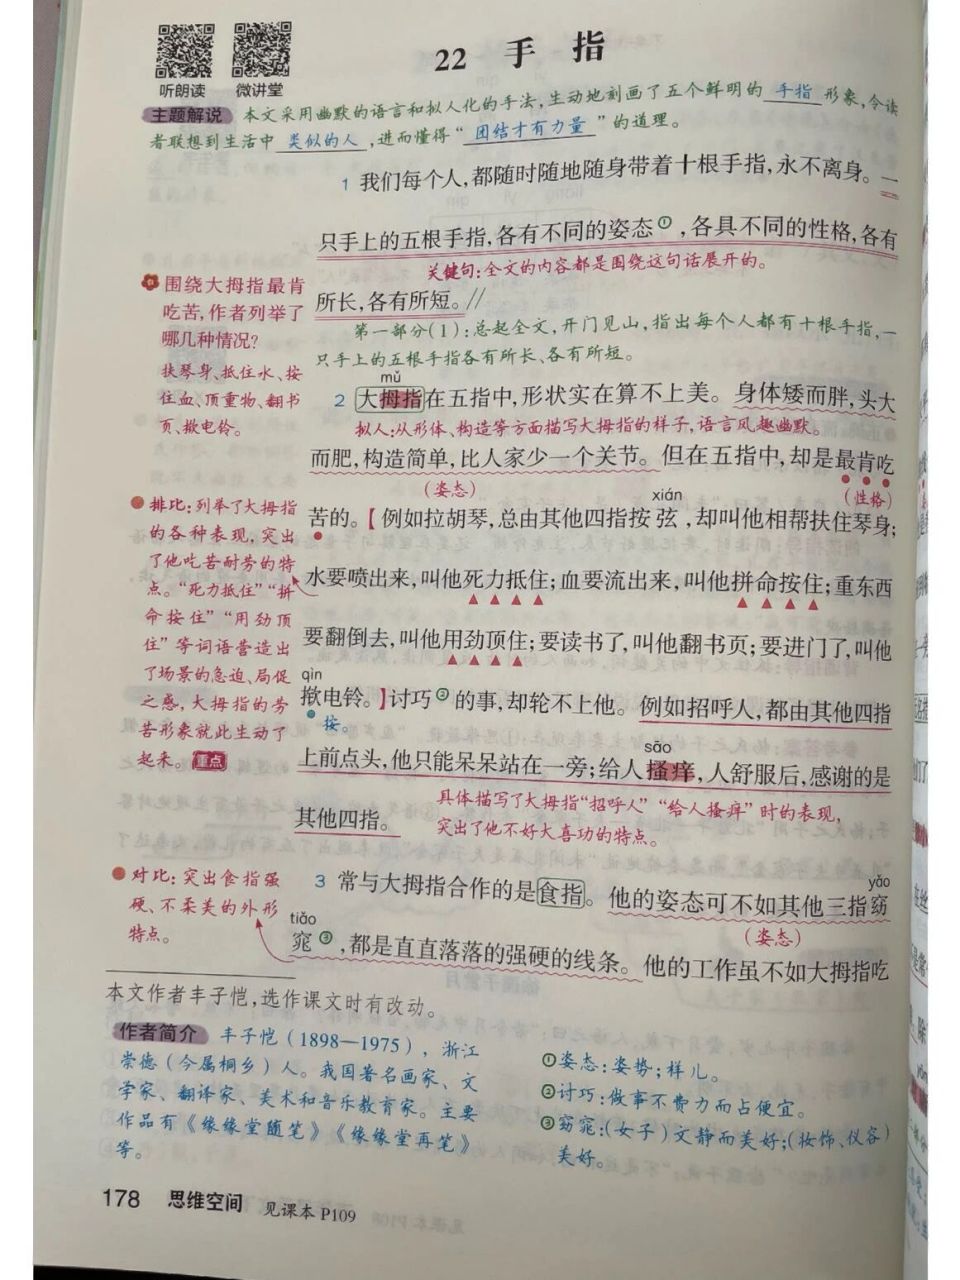 听朗读 微讲堂
22 手 指
主题解说 本文采用幽默的语言和拟人化的手法,生动地刻画了五个鲜明的 手指 形象,令读
者联想到生活中 类似的人 ,进而懂得“ 团结才有力量 ”的道理。
1 我们每个人,都随时随地随身带着十根手指,永不离身。一
只手上的五根手指,各有不同的姿态①,各具不同的性格,各有
关键句:全文的内容都是围绕这句话展开的。
所长,各有所短。//
第一部分(1):总起全文,开门见山,指出每个人都有十根手指,一
只手上的五根手指各有所长、各有所短。
围绕大拇指最肯
吃苦,作者列举了
哪几种情况?
扶琴身、抵住水、按
住血、顶重物、翻书
页、揿电铃。
mǔ
2 大拇指在五指中,形状实在算不上美。身体矮而胖,头大
拟人:从形体、构造等方面描写大拇指的样子,语言风趣幽默。
而肥,构造简单,比人家少一个关节。但在五指中,却是最肯吃
(姿态)
(性格)
xián
苦的。【例如拉胡琴,总由其他四指按弦,却叫他相帮扶住琴身;
水要喷出来,叫他死力抵住;血要流出来,叫他拼命按住;重东西
要翻倒去,叫他用劲顶住;要读书了,叫他翻书页;要进门了,叫他
qìn
揿电铃。】讨巧②的事,却轮不上他。例如招呼人,都由其他四指
按。
sāo
上前点头,他只能呆呆站在一旁;给人搔痒,人舒服后,感谢的是
具体描写了大拇指“招呼人”“给人搔痒”时的表现,
其他四指。
突出了他不好大喜功的特点。
排比:列举了大拇指
的各种表现,突出
了他吃苦耐劳的特
点。“死力抵住”“拼
命按住”“用劲顶
住”等词语营造出
了场景的急迫、局促
之感,大拇指的劳
苦形象就此生动了
起来。重点
3 常与大拇指合作的是食指。他的姿态可不如其他三指窈
yǎo
(姿态)
tiǎo
窕③,都是直直落落的强硬的线条。他的工作虽不如大拇指吃
对比:突出食指强
硬、不柔美的外形
特点。
本文作者丰子恺,选作课文时有改动。
作者简介 丰子恺(1898—1975),浙江
崇德(今属桐乡)人。我国著名画家、文
学家、翻译家、美术和音乐教育家。主要
作品有《缘缘堂随笔》《缘缘堂再笔》
等。
①姿态:姿势;样儿。
②讨巧:做事不费力而占便宜。
③窈窕:(女子)文静而美好;(妆饰、仪容)
美好。
178 思维空间 见课本 P109